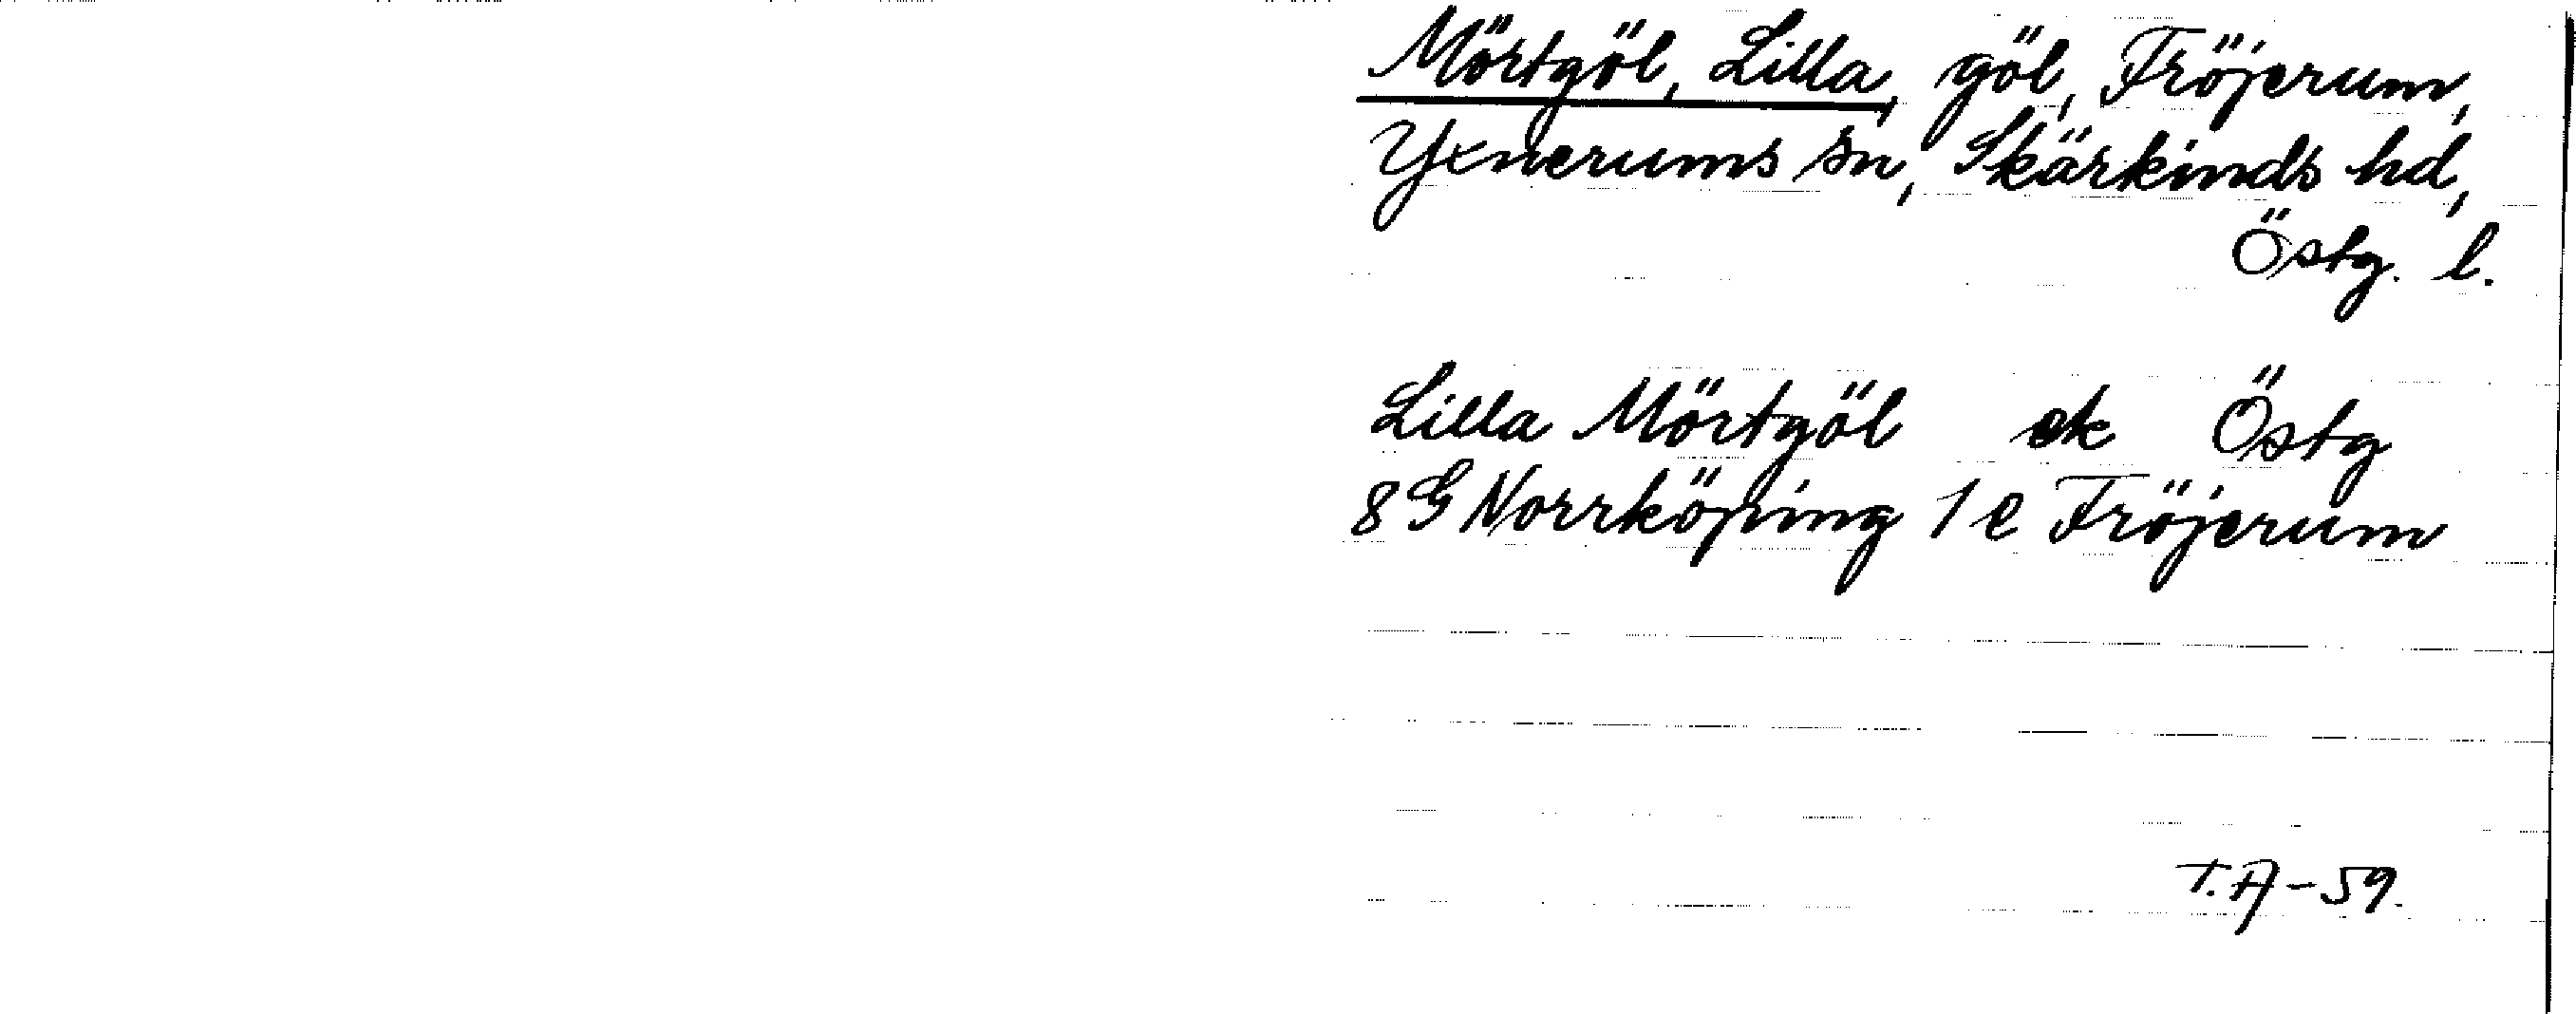 Mörtgöl, Lilla, göl, Fröjerum,
Yxnerums sn, Skärkinds hd,
Östg. l.
Lilla Mörtgöl ek Östg
8 G Norrköping 1 e Fröjerum
T.A-59.